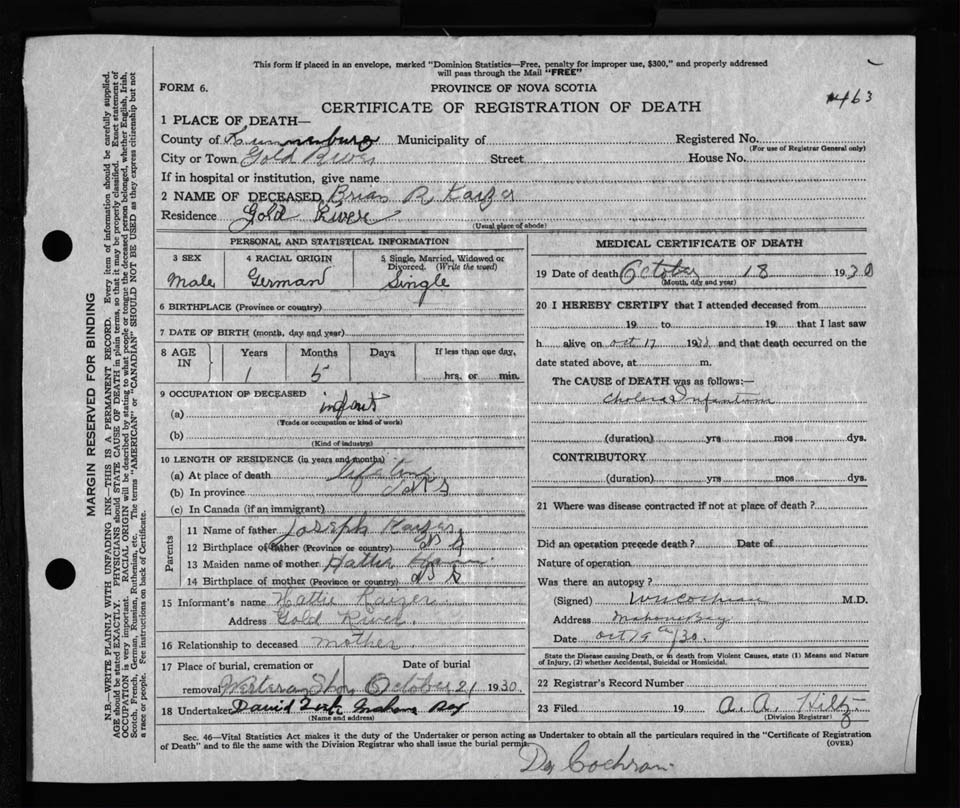 This form if placed in an envelope, marked "Dominion Statistics—Free, penalty for improper use, $300," and properly addressed
will pass through the Mail "FREE"
FORM 6.
PROVINCE OF NOVA SCOTIA
463
CERTIFICATE OF REGISTRATION OF DEATH
1 PLACE OF DEATH—
County of Lunenburg Municipality of Registered No.
(For use of Registrar General only)
City or Town Gold River Street House No.
If in hospital or institution, give name
2 NAME OF DECEASED Brian R Kaizer
Residence Gold River
(Usual place of abode)
PERSONAL AND STATISTICAL INFORMATION
3 SEX 4 RACIAL ORIGIN 5 Single, Married, Widowed or
Divorced. (Write the word)
Male German Single
6 BIRTHPLACE (Province or country)
7 DATE OF BIRTH (month, day and year)
8 AGE IN Years Months Days If less than one day,
1 5 hrs. or min.
9 OCCUPATION OF DECEASED
(a) infant
(Trade or occupation or kind of work)
(b)
(Kind of industry)
10 LENGTH OF RESIDENCE (in years and months)
(a) At place of death life time
(b) In province
(c) In Canada (if an immigrant)
Parents
11 Name of father Joseph Kaizer
12 Birthplace of father (Province or country) N S
13 Maiden name of mother Hattie
14 Birthplace of mother (Province or country) N S
15 Informant's name Hattie Kaizer
Address Gold River
16 Relationship to deceased mother
17 Place of burial, cremation or Date of burial
removal Western Shore October 21 1930
18 Undertaker David Mahone Bay
(Name and address)
MEDICAL CERTIFICATE OF DEATH
19 Date of death October 18 1930
(Month, day and year)
20 I HEREBY CERTIFY that I attended deceased from
19 to 19 that I last saw
h alive on Oct 17 1930 and that death occurred on the
date stated above, at m.
The CAUSE of DEATH was as follows:—
Cholera Infantum
(duration) yrs mos dys.
CONTRIBUTORY
(duration) yrs mos dys.
21 Where was disease contracted if not at place of death?
Did an operation precede death? Date of
Nature of operation
Was there an autopsy?
(Signed) Cochran M.D.
Address Mahone Bay
Date Oct 19th/30.
State the Disease causing Death, or in death from Violent Causes, state (1) Means and Nature
of Injury, (2) whether Accidental, Suicidal or Homicidal.
22 Registrar's Record Number
23 Filed 19 A. A. Hiltz
(Division Registrar)
Sec. 46—Vital Statistics Act makes it the duty of the Undertaker or person acting as Undertaker to obtain all the particulars required in the "Certificate of Registration
of Death" and to file the same with the Division Registrar who shall issue the burial permit.
(OVER)
Dr Cochran
MARGIN RESERVED FOR BINDING
N.B.—WRITE PLAINLY WITH UNFADING INK—THIS IS A PERMANENT RECORD. Every item of information should be carefully supplied.
AGE should be stated EXACTLY. PHYSICIANS should STATE CAUSE OF DEATH in plain terms, so that it may be properly classified. Exact statement of
OCCUPATION is very important. RACIAL ORIGIN will be described by stating to what people or tongue the deceased person belonged, whether English, Irish,
Scotch, French, German, Russian, Ruthenian, etc. The terms "AMERICAN" or "CANADIAN" SHOULD NOT BE USED as they express citizenship but not
a race or people. Fee instructions on back of Certificate.